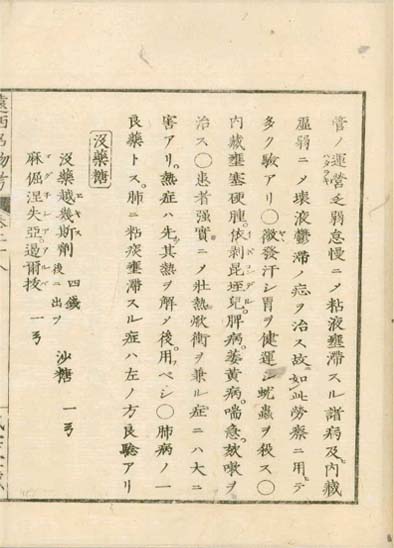 管ノ運營乏弱怠慢ニメ粘液壅滯スル諸病及ヒ内臓
虚弱ニメ壊液鬱滯ノ症ヲ治ス故ニ如此勞瘵ニ用ヒテ
多ク驗アリ〇微發汗シ胃ヲ健運シ蚘蟲ヲ殺ス〇
内臓壅塞硬腫依剝昆垤兒脾病萎黄病喘急欬嗽ヲ
治ス〇患者强實ニメ壮熱焮衝ヲ兼ル症ニハ大ニ
害アリ熱症ハ先其熱ヲ解メ後用ベシ〇肺病ノ一
良藥トス肺ニ粘痰壅滯スル症ハ左ノ方良驗アリ
沒藥糖
沒藥越幾斯劑 後ニ出ヲ 四錢 沙糖 一弓
麻倔涅失亞 過爾抜 一弓
遠西 物考 卷二 八